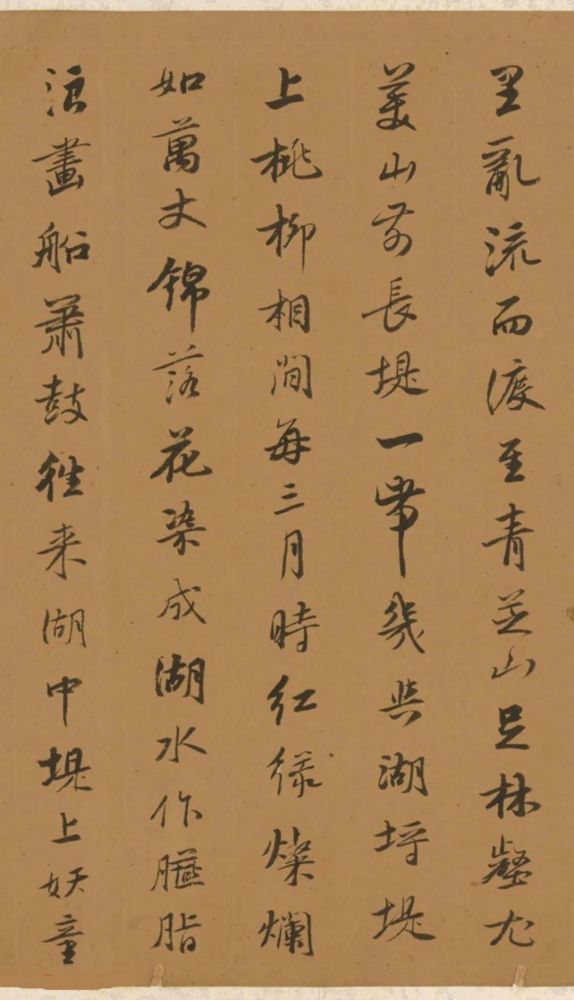 里亂流而渡至青芝山足林壑尤
美山前長堤一帶幾與湖埒堤
上桃柳相間每三月時紅綠燦爛
如萬丈錦落花染成湖水作臙脂
浪畫船簫鼓往来湖中堤上妖童